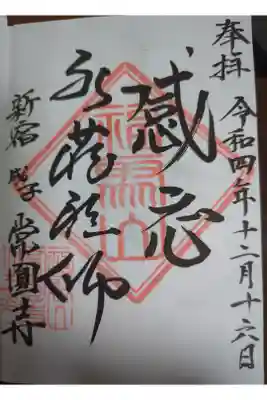 奉拝 令和四年十二月十六日
感応
祖師
新宿 成子 常圓寺